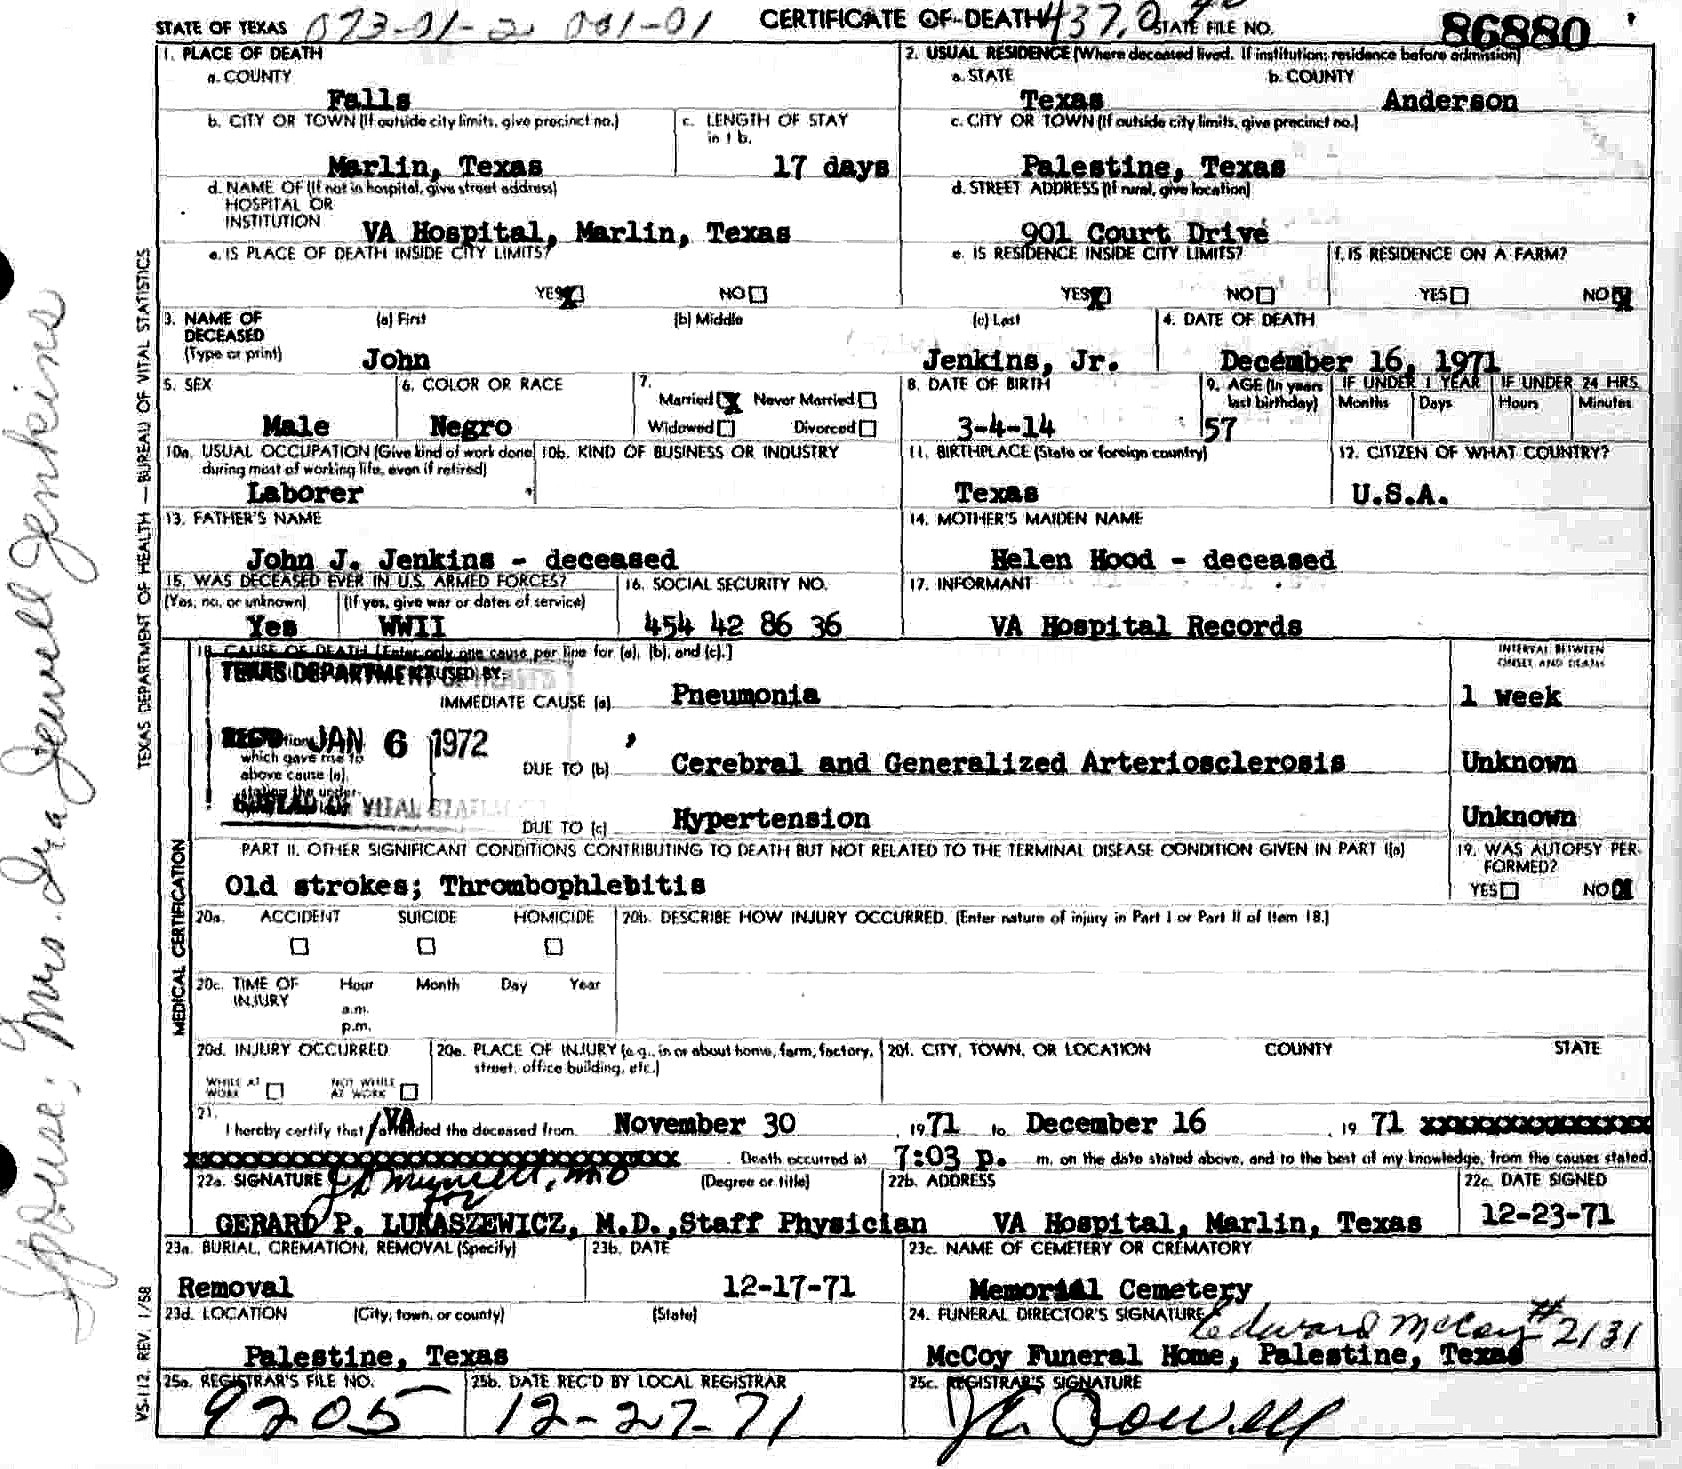 STATE OF TEXAS
CERTIFICATE OF DEATH
STATE FILE NO. 86880
1. PLACE OF DEATH
a. COUNTY
Falls
2. USUAL RESIDENCE (Where deceased lived. If institution; residence before admission)
a. STATE
Texas
b. COUNTY
Anderson
b. CITY OR TOWN (If outside city limits, give precinct no.)
Marlin, Texas
c. LENGTH OF STAY
in 1 b.
17 days
c. CITY OR TOWN (If outside city limits, give precinct no.)
Palestine, Texas
d. NAME OF (If not in hospital, give street address)
HOSPITAL OR
INSTITUTION
VA Hospital, Marlin, Texas
d. STREET ADDRESS (If rural, give location)
901 Court Drive
e. IS PLACE OF DEATH INSIDE CITY LIMITS?
YES NO
e. IS RESIDENCE INSIDE CITY LIMITS?
YES NO
f. IS RESIDENCE ON A FARM?
YES NO
3. NAME OF
DECEASED
(Type or print)
(a) First
John
(b) Middle
(c) Last
Jenkins, Jr.
4. DATE OF DEATH
December 16, 1971
5. SEX
Male
6. COLOR OR RACE
Negro
7.
Married Never Married
Widowed Divorced
8. DATE OF BIRTH
3-4-14
9. AGE (In years
last birthday)
57
IF UNDER 1 YEAR
Months Days
IF UNDER 24 HRS.
Hours Minutes
10a. USUAL OCCUPATION (Give kind of work done
during most of working life, even if retired)
Laborer
10b. KIND OF BUSINESS OR INDUSTRY
11. BIRTHPLACE (State or foreign country)
Texas
12. CITIZEN OF WHAT COUNTRY?
U.S.A.
13. FATHER'S NAME
John J. Jenkins - deceased
14. MOTHER'S MAIDEN NAME
Helen Hood - deceased
15. WAS DECEASED EVER IN U.S. ARMED FORCES?
(Yes, no, or unknown)
Yes
(If yes, give war or dates of service)
WWII
16. SOCIAL SECURITY NO.
454 42 86 36
17. INFORMANT
VA Hospital Records
18. CAUSE OF DEATH [Enter only one cause per line for (a), (b), and (c).]
INTERVAL BETWEEN
ONSET AND DEATH
TEXAS DEPARTMENT
IMMEDIATE CAUSE (a)
Pneumonia
1 week
REC'D JAN 6 1972
which gave rise to
above cause (a),
stating the under-
DUE TO (b)
Cerebral and Generalized Arteriosclerosis
Unknown
BUREAU OF VITAL STATISTICS
DUE TO (c)
Hypertension
Unknown
PART II. OTHER SIGNIFICANT CONDITIONS CONTRIBUTING TO DEATH BUT NOT RELATED TO THE TERMINAL DISEASE CONDITION GIVEN IN PART I(a)
Old strokes; Thrombophlebitis
19. WAS AUTOPSY PER-
FORMED?
YES NO
20a. ACCIDENT SUICIDE HOMICIDE
20b. DESCRIBE HOW INJURY OCCURRED. (Enter nature of injury in Part I or Part II of Item 18.)
20c. TIME OF
INJURY
Hour Month Day Year
a.m.
p.m.
20d. INJURY OCCURRED
WHILE AT
WORK
NOT WHILE
AT WORK
20e. PLACE OF INJURY (e.g., in or about home, farm, factory,
street, office building, etc.)
20f. CITY, TOWN, OR LOCATION COUNTY STATE
21.
I hereby certify that VA attended the deceased from November 30, 1971 to December 16, 1971 xxxxxxxxxxxxxx
xxxxxxxxxxxxxxxxxxxxxxxxxxxxxx Death occurred at 7:03 p. m. on the date stated above, and to the best of my knowledge, from the causes stated.
22a. SIGNATURE
for
(Degree or title)
GERARD P. LUKASZEWICZ, M.D., Staff Physician
22b. ADDRESS
VA Hospital, Marlin, Texas
22c. DATE SIGNED
12-23-71
23a. BURIAL, CREMATION, REMOVAL (Specify)
Removal
23b. DATE
12-17-71
23c. NAME OF CEMETERY OR CREMATORY
Memorial Cemetery
23d. LOCATION (City, town, or county) (State)
Palestine, Texas
24. FUNERAL DIRECTOR'S SIGNATURE
Edward McCoy #2131
McCoy Funeral Home, Palestine, Texas
25a. REGISTRAR'S FILE NO.
9205
25b. DATE REC'D BY LOCAL REGISTRAR
12-27-71
25c. REGISTRAR'S SIGNATURE
TEXAS DEPARTMENT OF HEALTH — BUREAU OF VITAL STATISTICS
MEDICAL CERTIFICATION
VS-112. REV. 1/58
Spouse: Mrs. Ira Jewell Jenkins